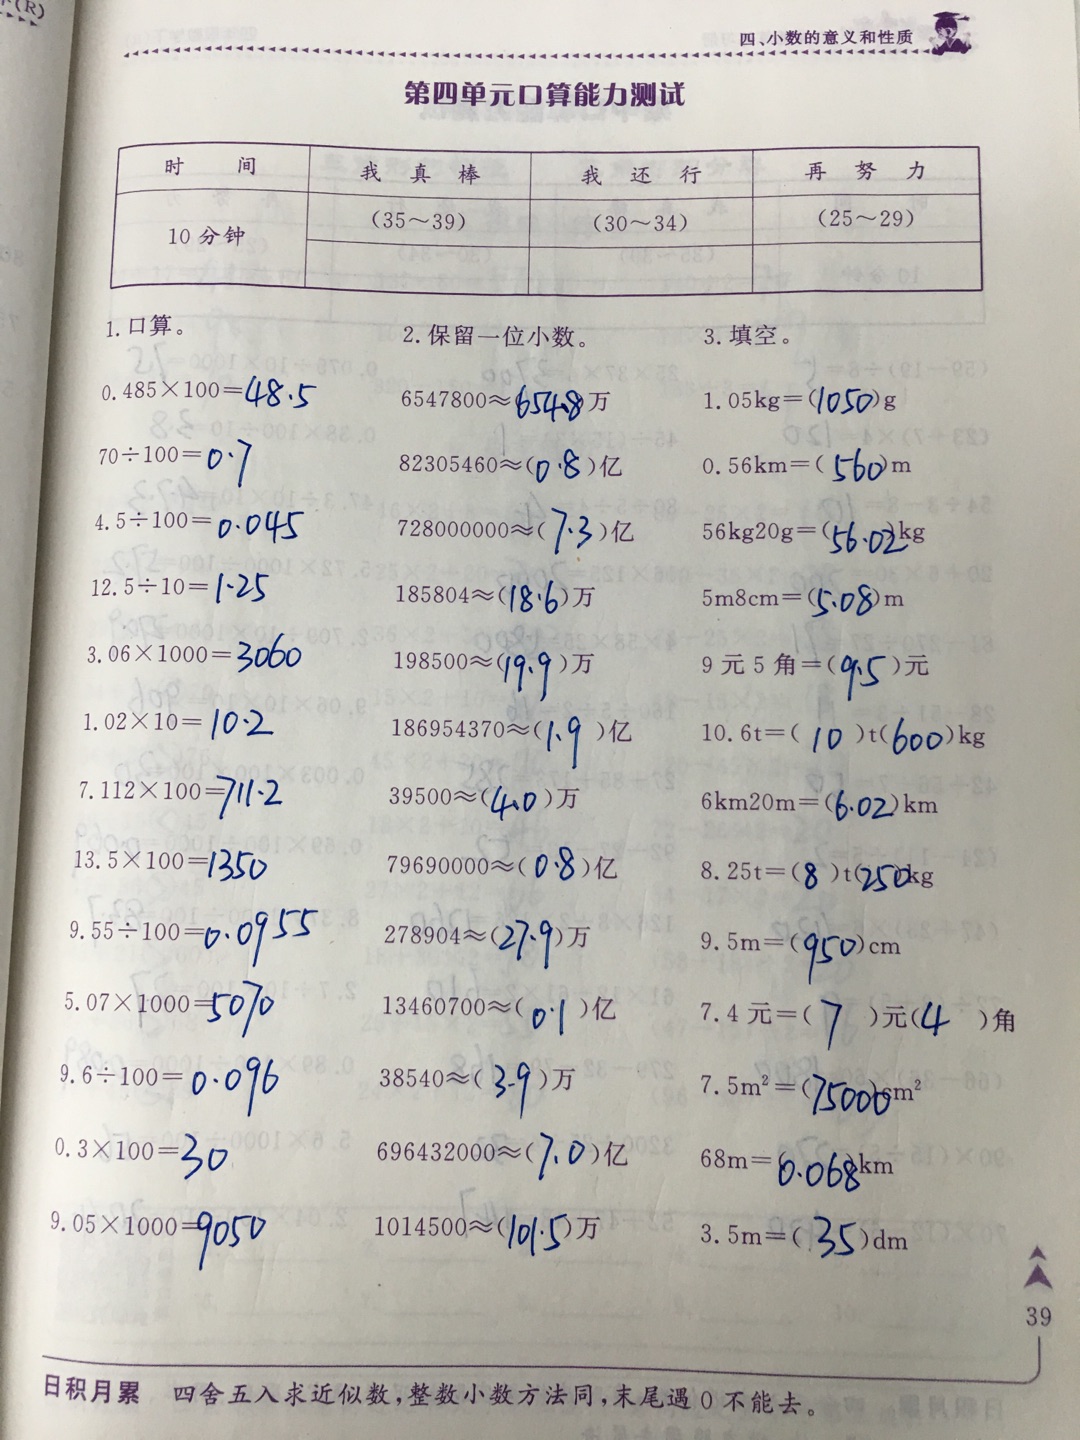 (R)
四、小数的意义和性质
第四单元口算能力测试
时 间 我 真 棒 我 还 行 再 努 力
10分钟 (35～39) (30～34) (25～29)
1.口算。
0.485×100=48.5
70÷100=0.7
4.5÷100=0.045
12.5÷10=1.25
3.06×1000=3060
1.02×10=10.2
7.112×100=711.2
13.5×100=1350
9.55÷100=0.0955
5.07×1000=5070
9.6÷100=0.096
0.3×100=30
9.05×1000=9050
2.保留一位小数。
6547800≈(654.8)万
82305460≈(0.8)亿
728000000≈(7.3)亿
185804≈(18.6)万
198500≈(19.9)万
186954370≈(1.9)亿
39500≈(4.0)万
79690000≈(0.8)亿
278904≈(27.9)万
13460700≈(0.1)亿
38540≈(3.9)万
696432000≈(7.0)亿
1014500≈(101.5)万
3.填空。
1.05kg=(1050)g
0.56km=(560)m
56kg20g=(56.02)kg
5m8cm=(5.08)m
9元5角=(9.5)元
10.6t=(10)t(600)kg
6km20m=(6.02)km
8.25t=(8)t(250)kg
9.5m=(950)cm
7.4元=(7)元(4)角
7.5m²=(75000)cm²
68m=(0.068)km
3.5m=(35)dm
39
日积月累 四舍五入求近似数,整数小数方法同,末尾遇0不能去。